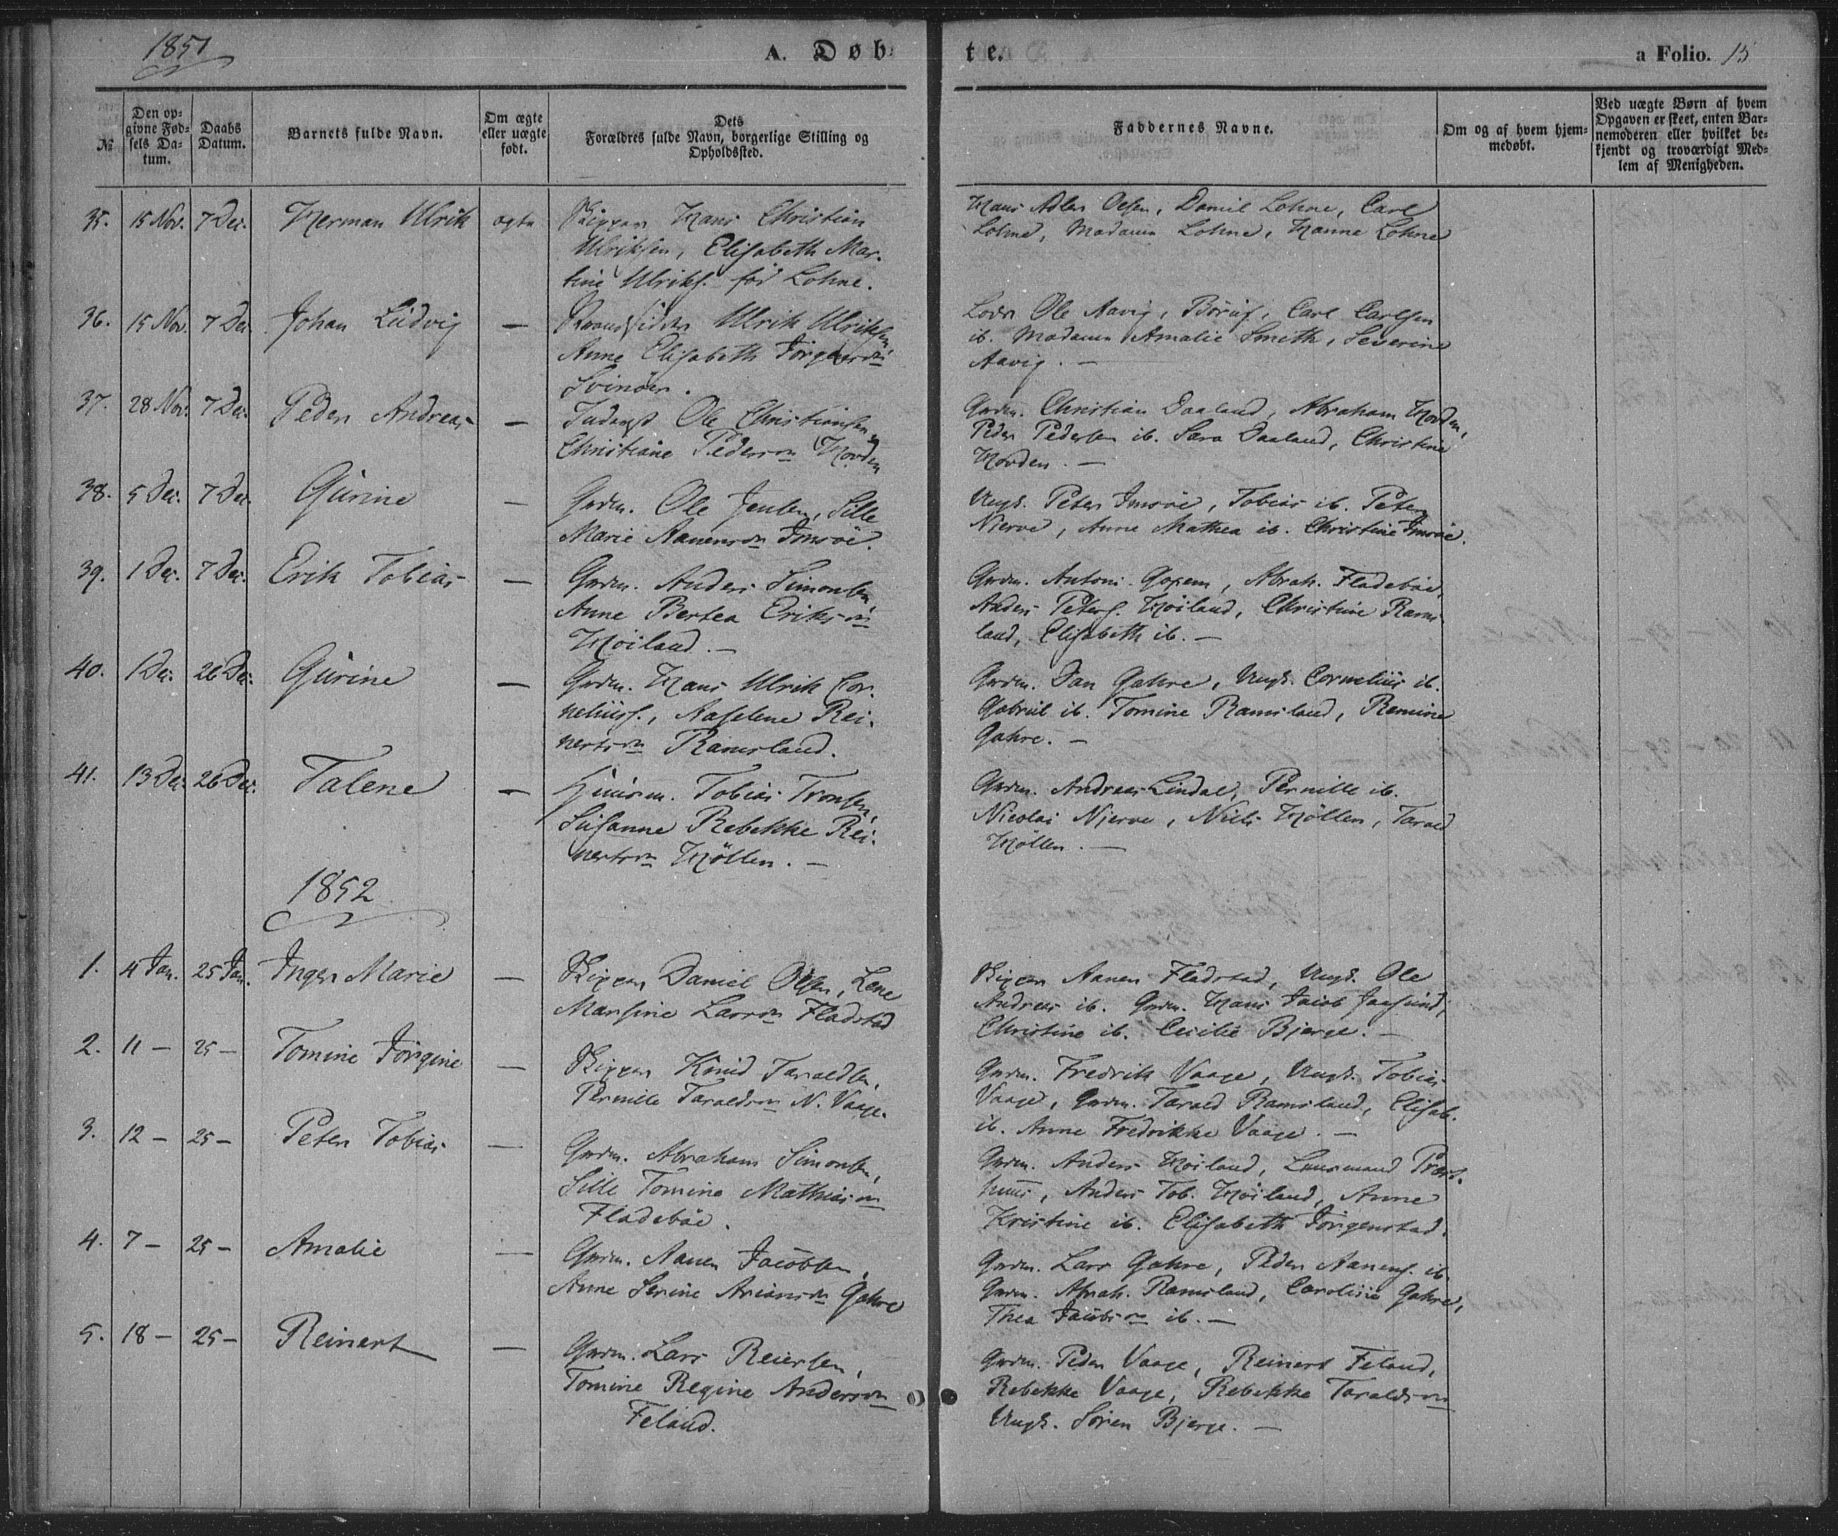 1851
A. Døb
te.
a Folio. 15
№
Den opgivne Fødsels Datum.
Daabs Datum.
Barnets fulde Navn.
Om ægte eller uægte født.
Dets Forældres fulde Navn, borgerlige Stilling og Opholdssted.
Faddernes Navne.
Om og af hvem hjemmedøbt.
Ved uægte Børn af hvem Opgaven er skeet, enten Barnemoderen eller hvilket bekjendt og troværdigt Medlem af Menigheden.
35. 15 Nov. 7 Dec. Herman Ulrik ægte
Skipper Hans Christian
Ulriksen, Elisabeth Mar-
tine Ulriks. fød Lohne.
Hans Adler Olsen, Daniel Lohne, Carl
Lohne, Madame Lohne, Hanne Lohne
36. 15 Nov. 7 Dec Johan Ludvig —
Strandsidder Ulrik Ulriksen,
Anne Elisabeth Jørgensdn
Svinøer.
Lods Ole Aavig, Carl Carlsen
ib. Madame Amalie Smith, Severine
Aavig. —
37. 28 Nov. 7 Dec. Peder Andreas —
Inderst Ole Christiansen,
Christiane Pedersdn Horden
Grdm. Christian Daaland, Abraham Horden,
Peder Pedersen ib. Sara Daaland, Christine
Horden. —
38. 5 Dec. 7 Dec. Gurine —
Grdm. Ole Jensen, Sille
Marie Aanensdn Imsøe.
Ungk. Peter Imsøe, Tobias ib. Peter
Njerve, Anne Mathea ib. Christine Imsøe.
39. 1 Dec. 7 Dec. Erik Tobias —
Grdm. Anders Simonsen,
Anne Bertea Eriksdn
Høiland. —
Grdm. Antoni Abrah. Fladebøe,
Anders Peters. Høiland, Christine Rams-
land, Elisabeth ib. —
40. 1 Dec. 26 Dec. Gurine —
Grdm. Hans Ulrik Cor-
neliuss., Aaselene Rei-
nertsdn Ramsland.
Grdm. Jan Gahre, Ungk. Cornelius ib.
Gabriel ib. Tomine Ramsland, Remine
Gahre. —
41. 13 Dec. 26 Dec. Talene —
Huusm. Tobias Tronsen,
Susanne Rebekke Rei-
nertsdn Høllen. —
Grdm. Andreas Lindal, Pernille ib.
Nicolai Njerve, Niels Høllen, Tarald
Høllen. —
1852
1. 4 Jan. 25 Jan. Inger Marie —
Skipper Daniel Olsen, Lene
Marsine Larsdn Fladstad
Skipper Aanen Fladstad, Ungk. Ole
Andreas ib. Grdm. Hans Jacob Jaasund,
Christine ib. Cecilie Bjerge. —
2. 11 — 25 — Tomine Jørgine —
Skipper Knud Taraldsen,
Pernille Taraldsdn N. Vaage.
Grdm. Fredrik Vaage, Ungk. Tobias
Vaage, Grdm. Tarald Ramsland, Elisab.
ib. Anne Fredrikke Vaage. —
3. 12 — 25 — Peter Tobias —
Grdm. Abraham Simonsen,
Sille Tomine Mathiasdn
Fladebøe.
Grdm. Anders Høiland, Lensmand Præst-
huus, Anders Tob. Høiland, Anne
Kristine ib. Elisabeth Jørgenstad.
4. 7 — 25 — Amalie —
Grdm. Aanen Jacobsen,
Anne Serine Ariansdn Gahre
Grdm. Lars Gahre, Peder Aanens. ib.
Grdm. Abrah. Ramsland, Caroline Gahre,
Thea Jacobsdn ib. —
5. 18 — 25 — Reinert —
Grdm. Lars Reiersen,
Tomine Regine Andersdn
Feland.
Grdm. Peder Vaage, Reinert Feland,
Rebekke Vaage, Rebekke Taraldsdn
Ungk. Søren Bjerge. —